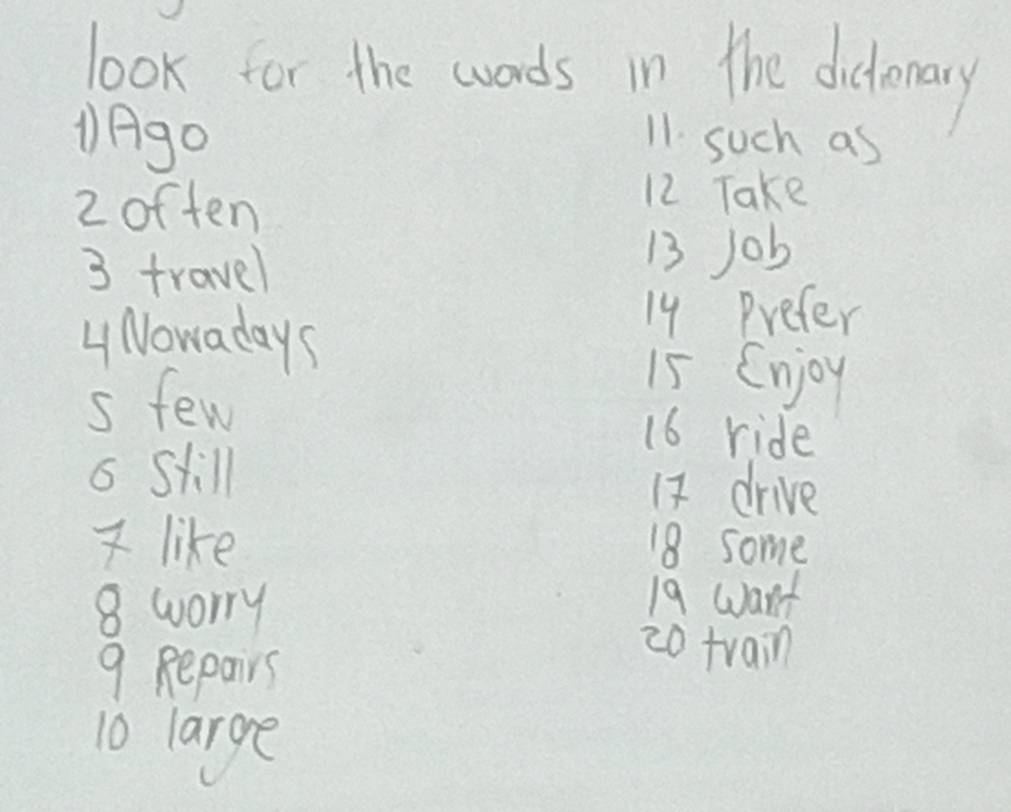 look for the words in the dictionary
1) Ago
2 often
3 travel
4 Nowadays
5 few
6 Still
7 like
8 worry
9 Repairs
10 large
11. such as
12 Take
13 Job
14 Prefer
15 Enjoy
16 ride
17 drive
18 some
19 want
20 train